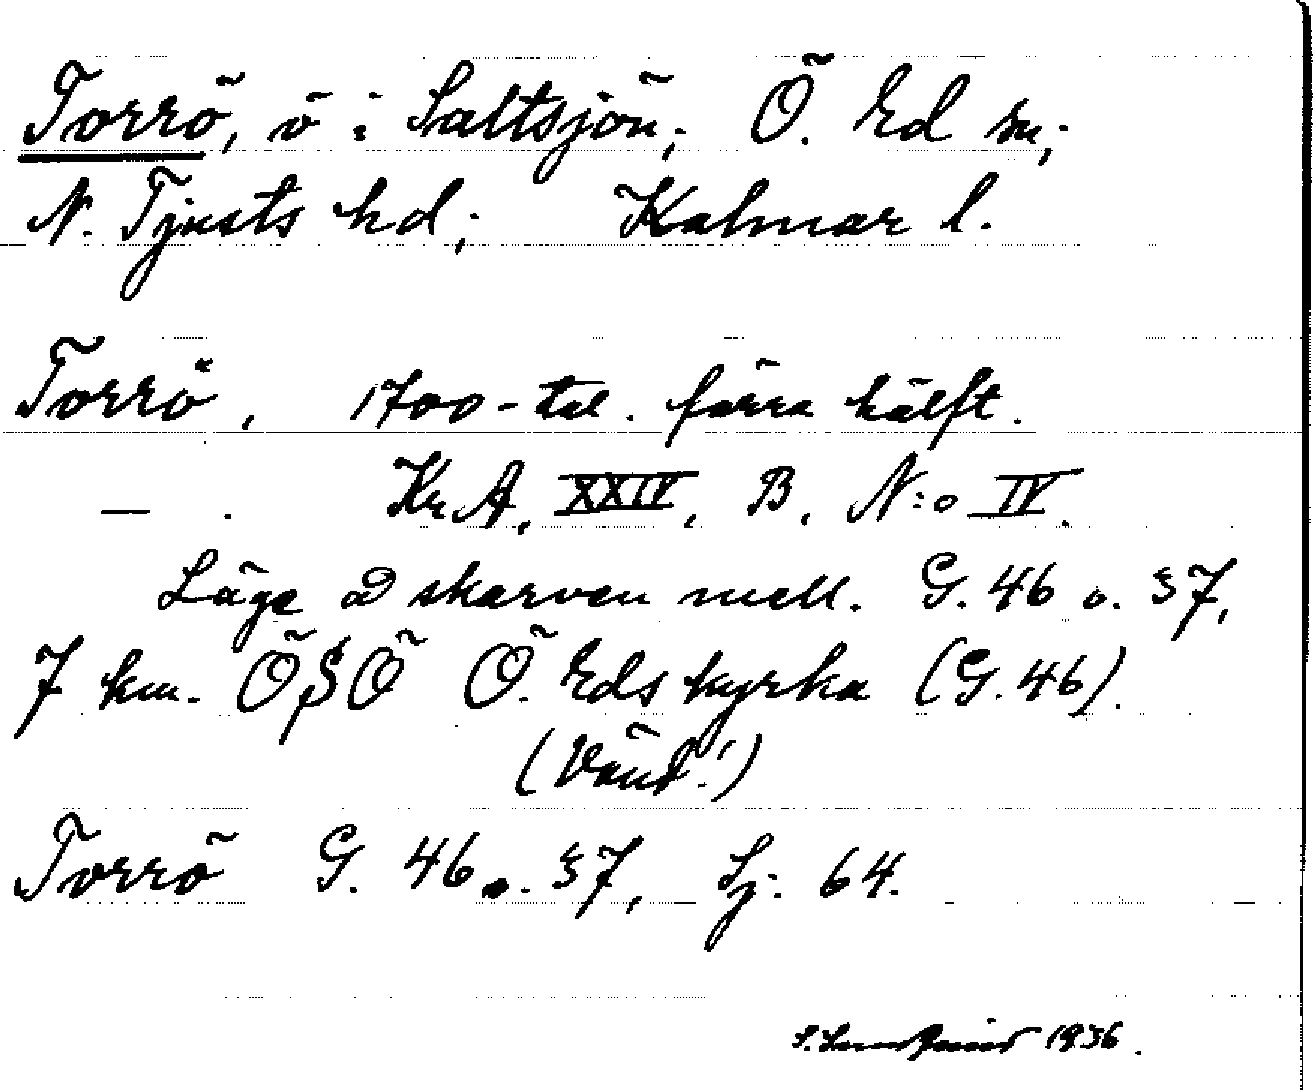 Torrö, ö i Saltsjön; Ö. Ed sn;
N. Tjusts hd; Kalmar l.
Torrö, 1700-tal. förra hälft.
— . KrA, XXIV, B, N:o IV.
Läge å skarven mell. G. 46 o. 37,
7 km. ÖSÖ Ö. Eds kyrka (G. 46).
(Vänd!)
Torrö G. 46 o. 37, Sj. 64.
1936.